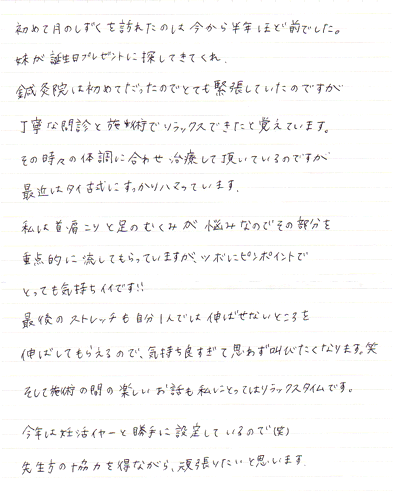 初めて月のしずくを訪れたのは今から半年ほど前でした。
妹が誕生日プレゼントに探してきてくれ、
鍼灸院は初めてだったのでとても緊張していたのですが
丁寧な問診と施術でリラックスできたと覚えています。
その時々の体調に合わせ治療して頂いているのですが
最近はタイ古式にすっかりハマっています。
私は首・肩こりと足のむくみが悩みなのでその部分を
重点的に流してもらっていますが、ツボにピンポイントで
とっても気持ちイイです!!
最後のストレッチも自分1人では伸ばせないところを
伸ばしてもらえるので、気持ち良すぎて思わず叫びたくなります。笑
そして施術の間の楽しいお話も私にとってはリラックスタイムです。
今年は妊活イヤーと勝手に設定しているので(笑)
先生方の協力を得ながら、頑張りたいと思います。